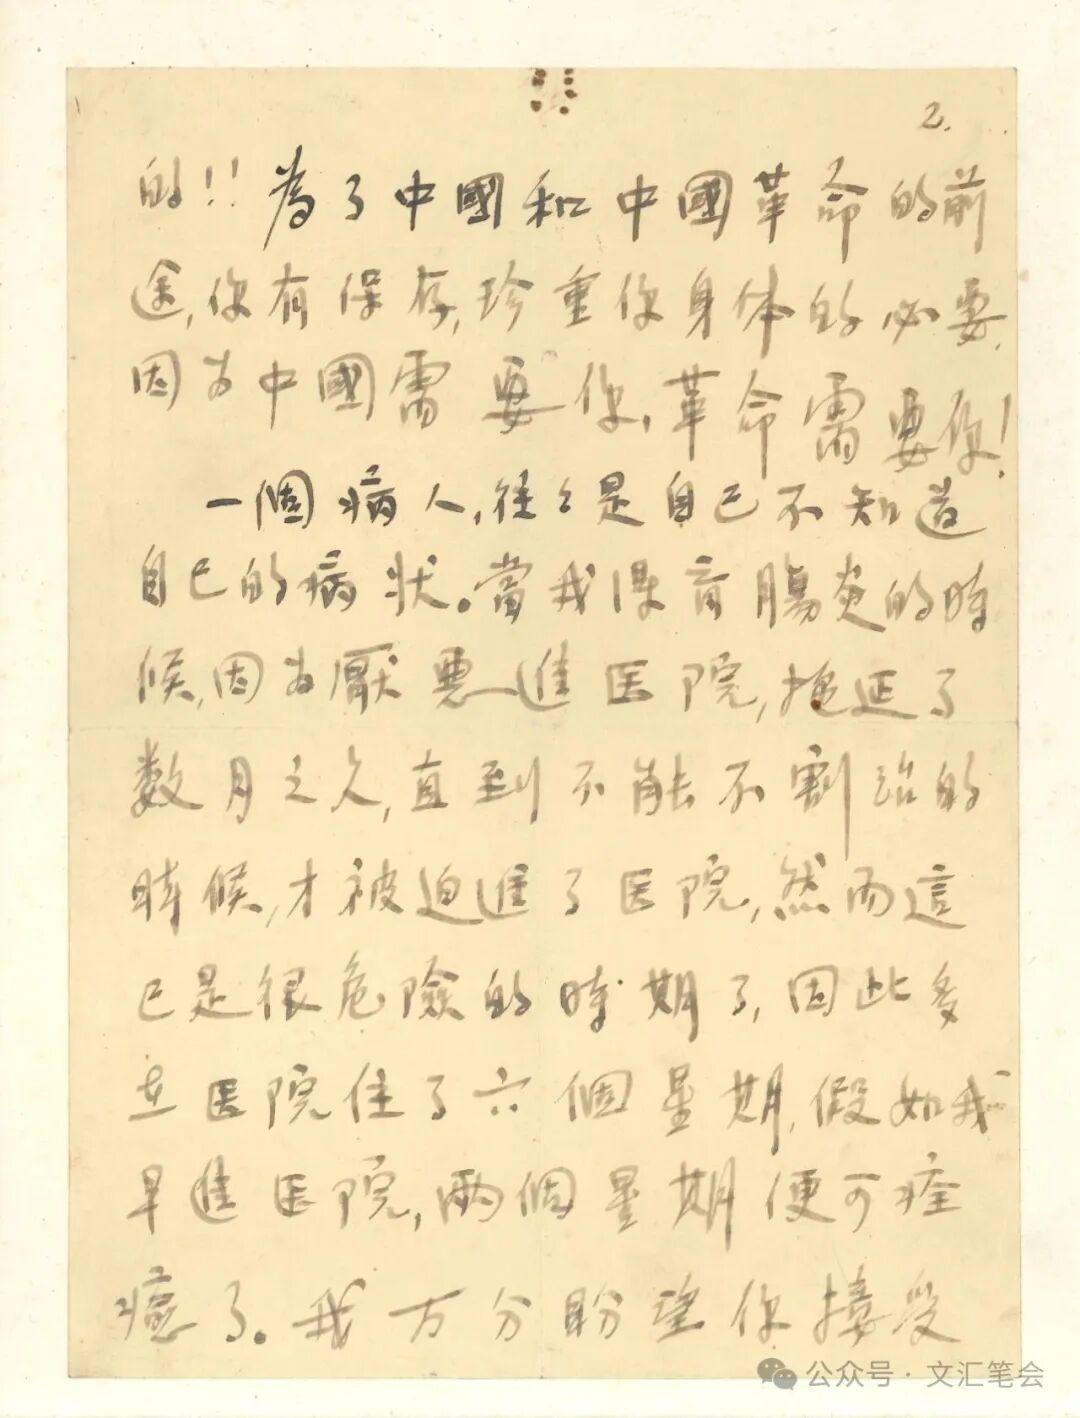 2.
的!! 為了中國和中國革命的前
途,你有保存,珍重你身体的必要.
因为中國需要你,革命需要你!
一個病人,往々是自己不知道
自己的病状。當我得盲腸炎的時
候,因为厭惡進医院,拖延了
数月之久,直到不能不割治的
時候,才被迫進了医院,然而這
已是很危險的時期了,因此多
在医院住了六個星期,假如我
早進医院,兩個星期便可痊
癒了。我万分盼望你接受
公众号·文汇笔会